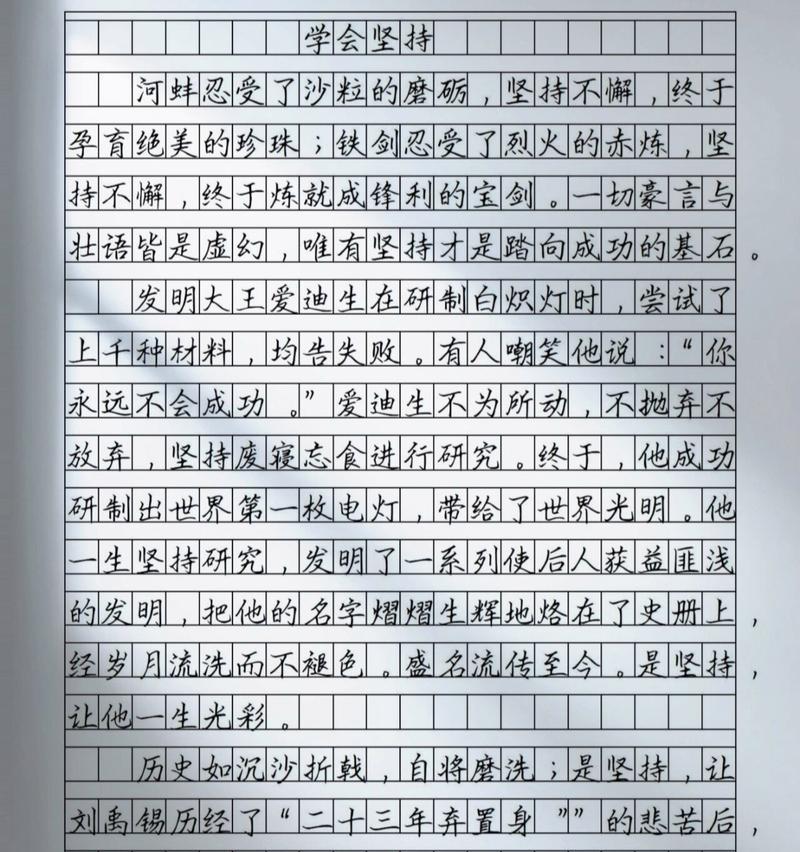 学会坚持
河蚌忍受了沙粒的磨砺，坚持不懈，终于
孕育绝美的珍珠；铁剑忍受了烈火的赤炼，坚
持不懈，终于炼就成锋利的宝剑。一切豪言与
壮语皆是虚幻，唯有坚持才是踏向成功的基石。
发明大王爱迪生在研制白炽灯时，尝试了
上千种材料，均告失败。有人嘲笑他说：“你
永远不会成功。”爱迪生不为所动，不抛弃不
放弃，坚持废寝忘食进行研究。终于，他成功
研制出世界第一枚电灯，带给了世界光明。他
一生坚持研究，发明了一系列使后人获益匪浅
的发明，把他的名字熠熠生辉地烙在了史册上，
经岁月流洗而不褪色。盛名流传至今。是坚持，
让他一生光彩。
历史如沉沙折戟，自将磨洗；是坚持，让
刘禹锡历经了“二十三年弃置身””的悲苦后，